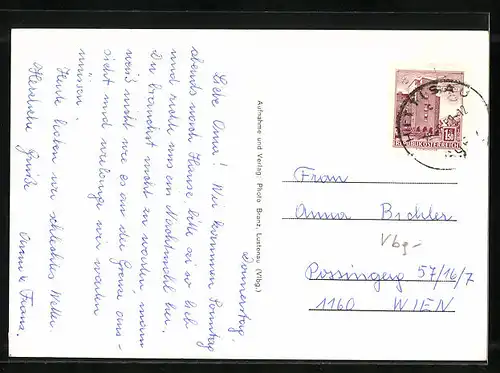 Donnerstag.
Liebe Oma! Wir kommen Sonntag
abends nach Hause, bitte sei so lieb
und richte uns ein Nachtmahl her.
Du brauchst nicht zu warten, man
weiß nicht wie es an der Grenze aus-
sieht und wie lange wir warten
müssen!
Heute haben wir schlechtes Wetter.
Herzliche Grüße
Anni & Franz.
Aufnahme und Verlag: Photo Branz, Lustenau (Vlbg.)
HITTISAU
REPUBLIK ÖSTERREICH
Frau
Anna Bichler
Vbg-
Possingerg 57/16/7
1160 WIEN